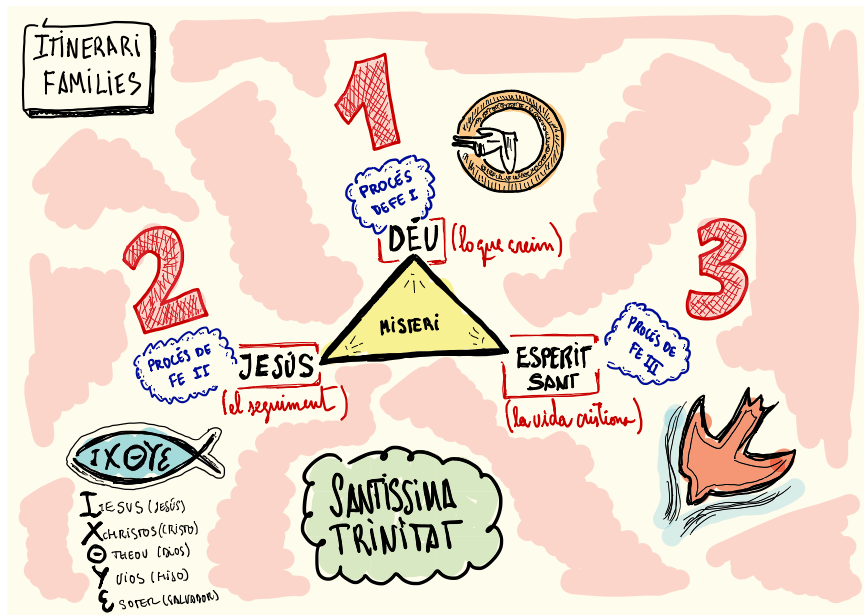 ITINERARI
FAMILIES
1
PROCÉS
DE FE I
DÉU (lo que creim)
2
3
MISTERI
PROCÉS DE
FE II
JESÚS
(el seguiment)
ESPERIT
SANT
(la vida cristiana)
PROCÉS DE
FE III
IXΘYE
IESUS (JESÚS)
XCHRISTOS (CRISTO)
Θ THEOU (DIOS)
Y UIOS (HIJO)
E SOTER (SALVADOR)
SANTÍSSIMA
TRINITAT